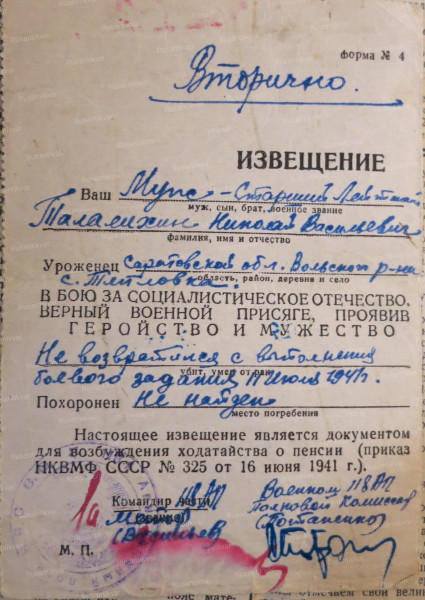 форма № 4
Вторично.
ИЗВЕЩЕНИЕ
Ваш Муж - Старший Лейтенант
муж, сын, брат, военное звание
Талалихин Николай Васильевич
фамилия, имя и отчество
Уроженец Саратовской обл. Вольского р-на
область, район, деревня и село
с. Тепловка.
В БОЮ ЗА СОЦИАЛИСТИЧЕСКОЕ ОТЕЧЕСТВО,
ВЕРНЫЙ ВОЕННОЙ ПРИСЯГЕ, ПРОЯВИВ
ГЕРОЙСТВО И МУЖЕСТВО
Не возвратился с выполнения
убит, умер от ран
боевого задания 11 Июля 1941г.
Похоронен Не найден
место погребения
Настоящее извещение является документом
для возбуждения ходатайства о пенсии (приказ
НКВМФ СССР № 325 от 16 июня 1941 г.).
Командир части 118 АП
(Васильев)
Военком 118 АП
Полковой Комиссар
(Потапенко)
М. П.